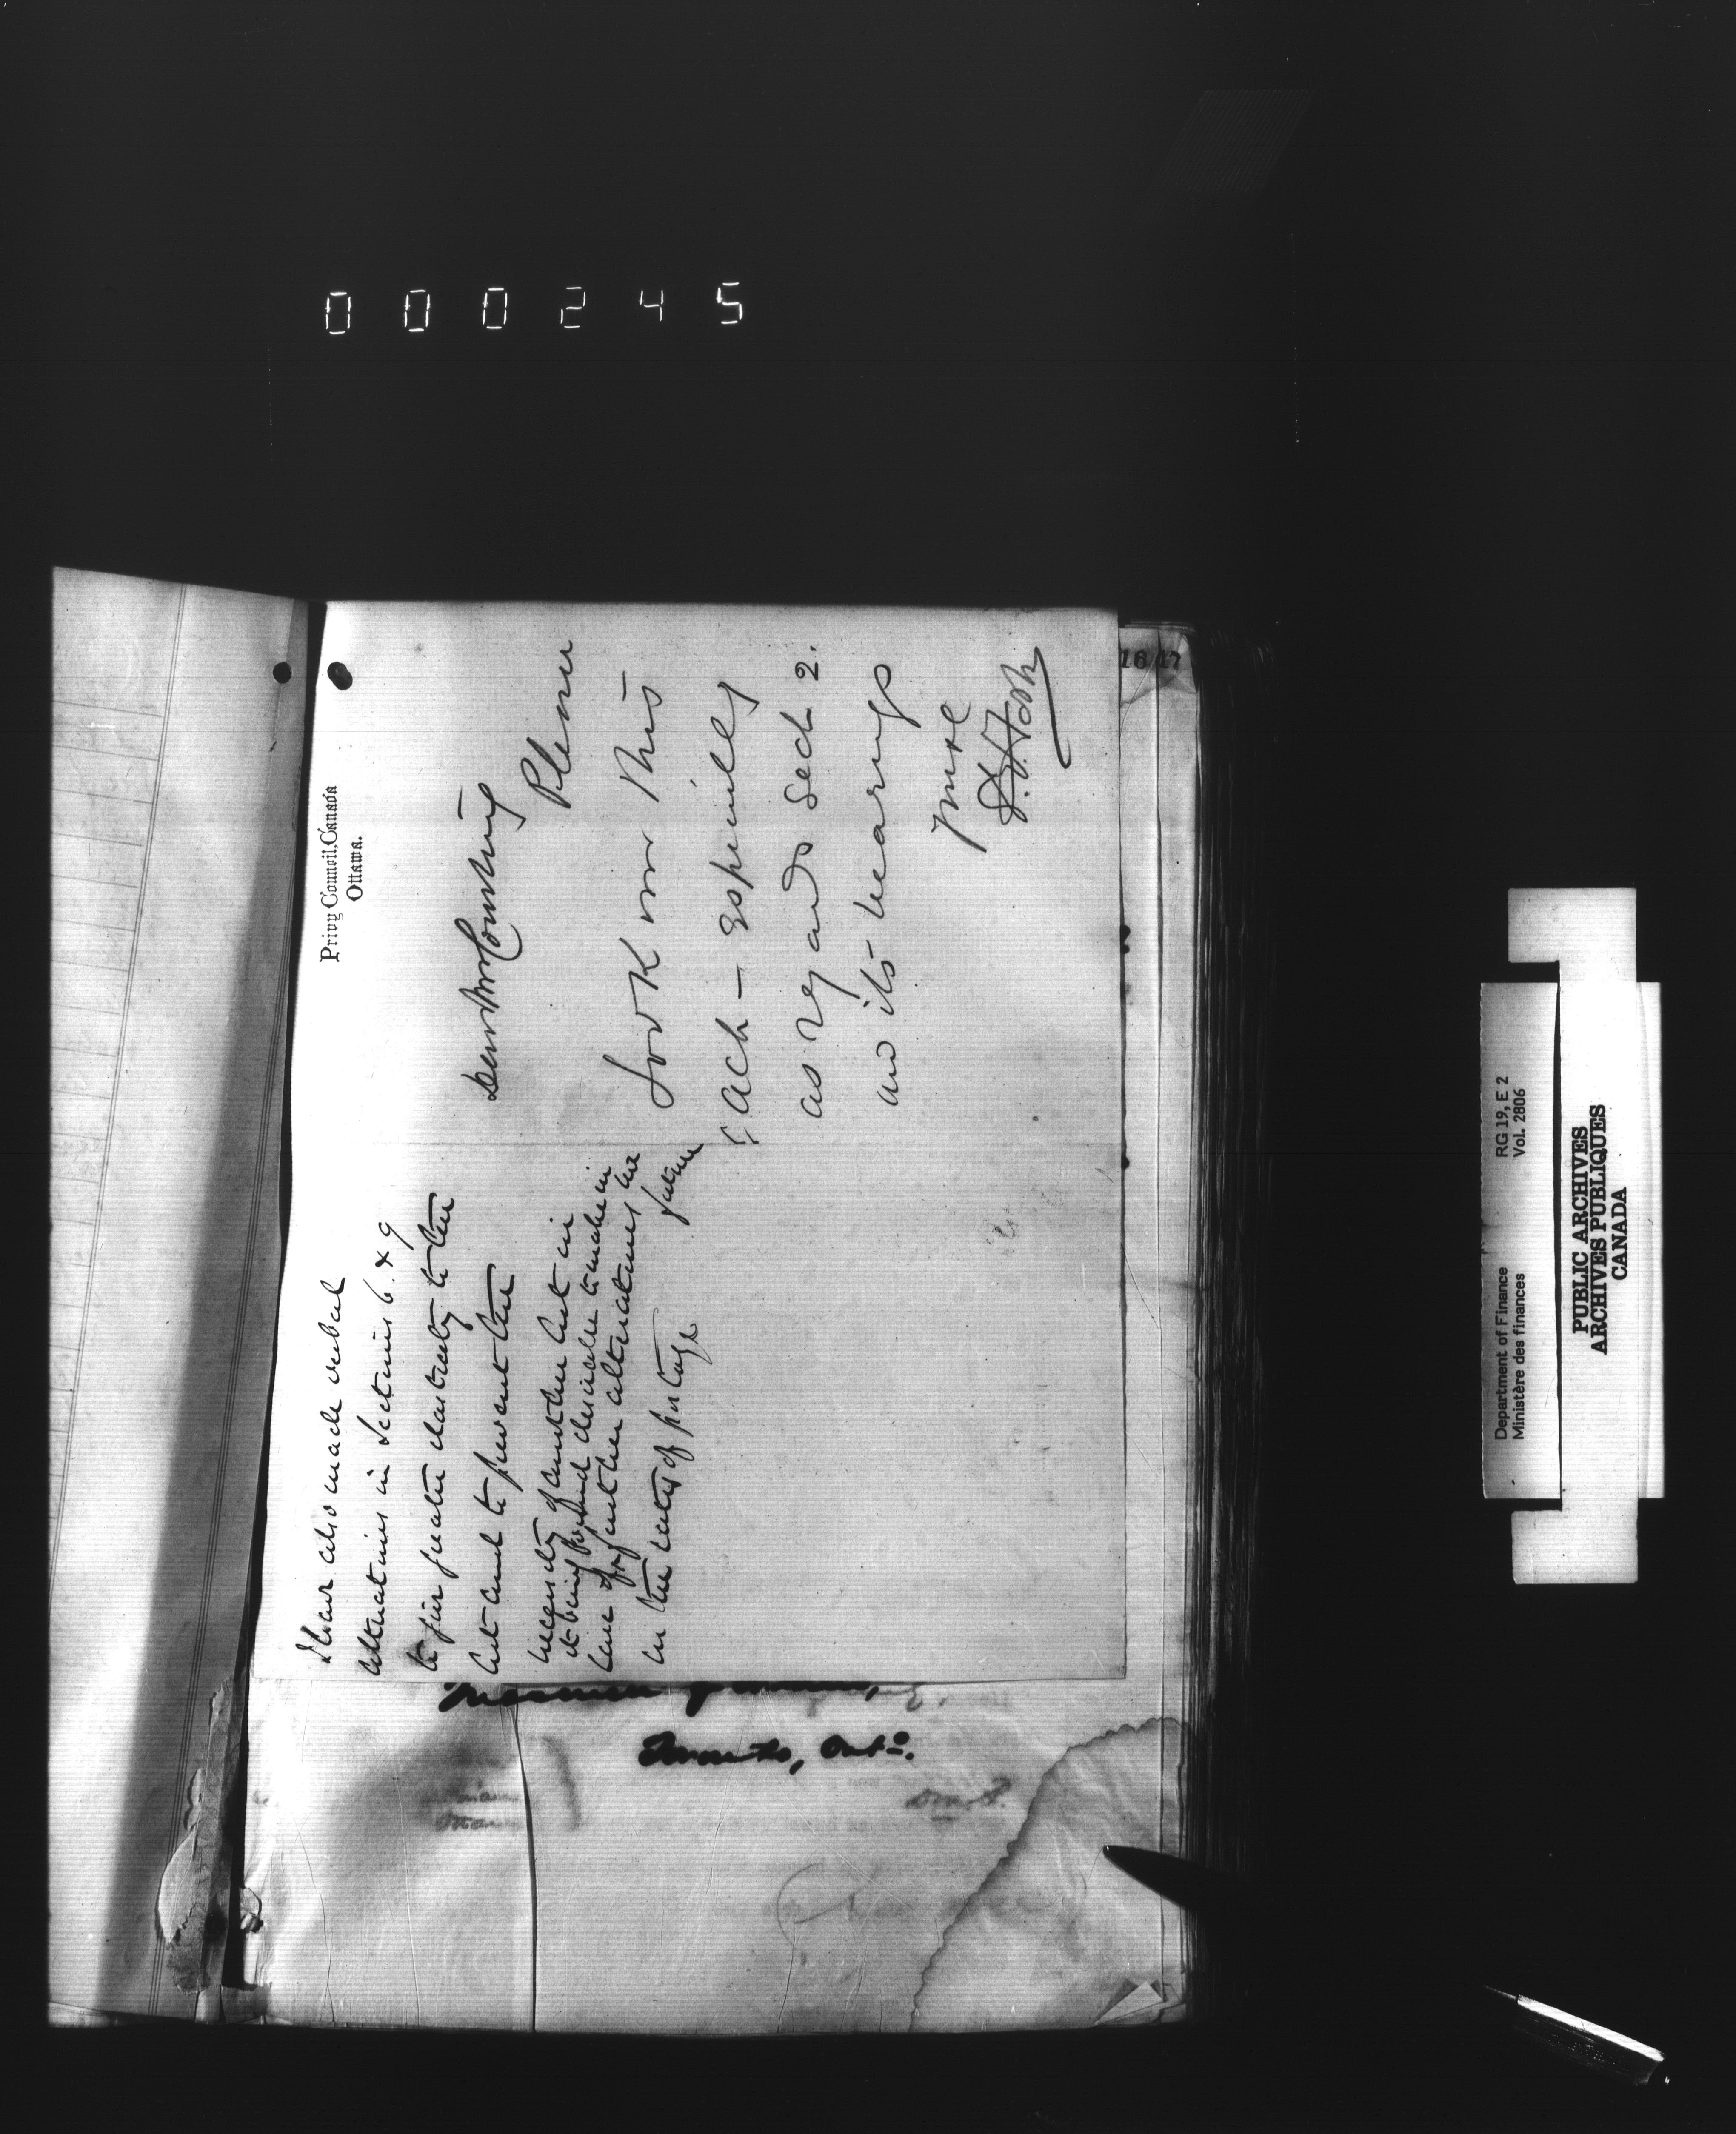 000245
16 17
Privy Council, Canada
Ottawa.
Dear Mr Courtney
Please
Look over this
Act – especially
as regards Sect 2.
and its bearings
Yours
I have also made verbal
alterations in Sections 6. & 9
to give greater elasticity to the
Act and to prevent the
necessity of another Act in
it being found desirable to make in
case of further alterations
future
in the rates of postage
Toronto, Ont.
Department of Finance
Ministère des finances
RG 19, E 2
Vol. 2806
PUBLIC ARCHIVES
ARCHIVES PUBLIQUES
CANADA